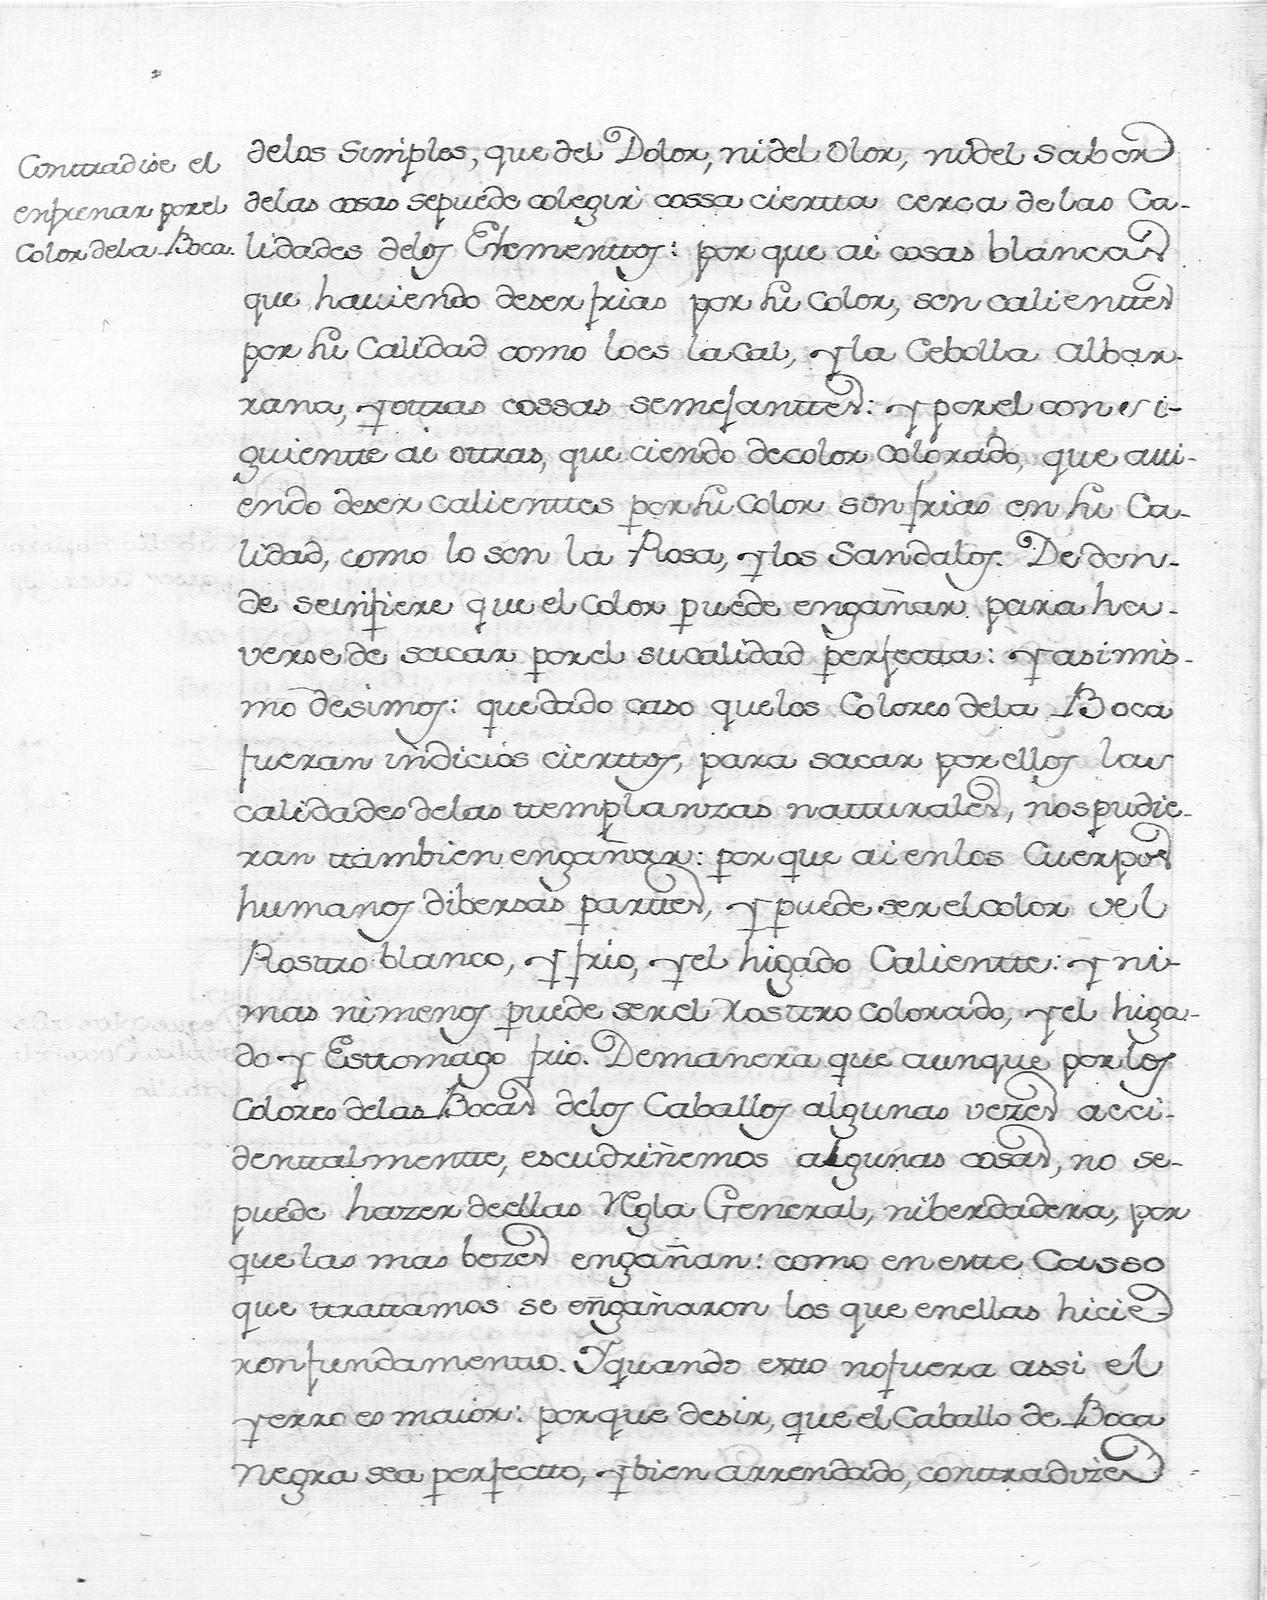 Conttradise el
enfrenar por el
Color dela Boca.
delos Simples, que del Dolor, nidel Olor, nidel Sabor
delas cosas sepuede colegir cossa ciertta cerca de las Ca-
lidades delos Elementtos: por que ai cosas blancas
que haviendo deser frias por su Color, son calienttes
por su Calidad como loes la Cal, y la Cebolla Albar-
rana, y ottras cossas semejanttes: y por el consi-
guientte ai ottras, que ciendo decolor Colorado, que avi-
endo deser calienttes por su Color son frias en su Ca-
lidad, como lo son la Rosa, y los Sandalos. De don-
de seinfiere que el Color puede engañar para ha-
verse de sacar por el sucalidad perfectta: y asimis-
mo desimos: que dado caso quelos Colores dela Boca
fueran indicios ciertos, para sacar por ellos las
calidades delas ttemplanzas natturales, nos pudie-
ran ttambien engañar: por que ai enlos Cuerpos
humanos dibersas parttes, y puede ser el color del
Rosttro blanco, y frio, y el higado Calientte: y ni-
mas nimenos puede ser el Rosttro Colorado, y el higa-
do y Esttomago frio. Demanera que aunque por los
Colores delas Bocas delos Caballos algunas vezes acci-
denttalmentte, escudriñemos algunas cosas, no se-
puede hazer deellas Regla General, niberdadera, por
que las mas bezes engañan: como en estte Casso
que ttrattamos se engañaron los que enellas hicie-
ron fundamentto. Y quando estto nofuera assi el
yerro es maior: por que desir, que el Caballo de Boca
Negra sea perfectto, y bien arrendado, conttradizes